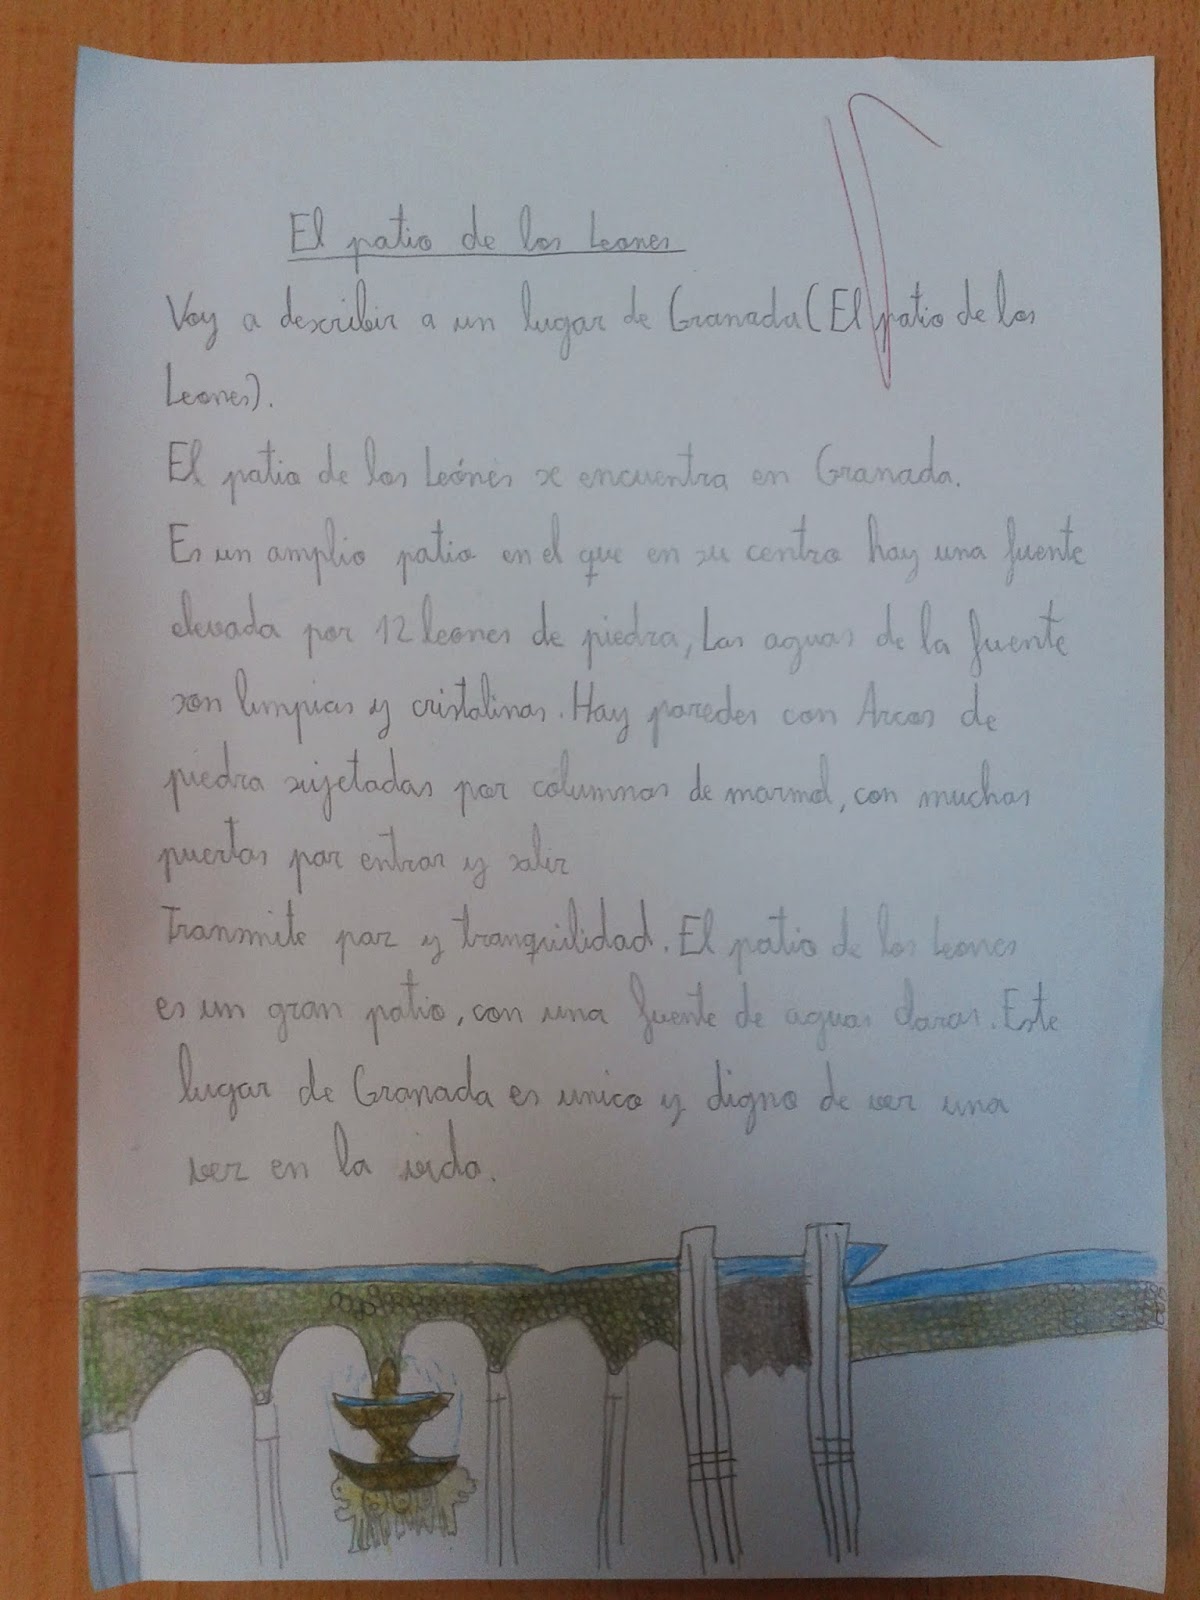 El patio de los Leones
Voy a describir a un lugar de Granada (El patio de los
Leones).
El patio de los Leónes se encuentra en Granada.
Es un amplio patio en el que en su centro hay una fuente
elevada por 12 leones de piedra, Las aguas de la fuente
son limpias y cristalinas. Hay paredes con Arcos de
piedra sujetadas por columnas de marmol, con muchas
puertas par entrar y salir
Transmite paz y tranquilidad. El patio de los Leones
es un gran patio, con una fuente de aguas claras. Este
lugar de Granada es unico y digno de ver una
vez en la vida.